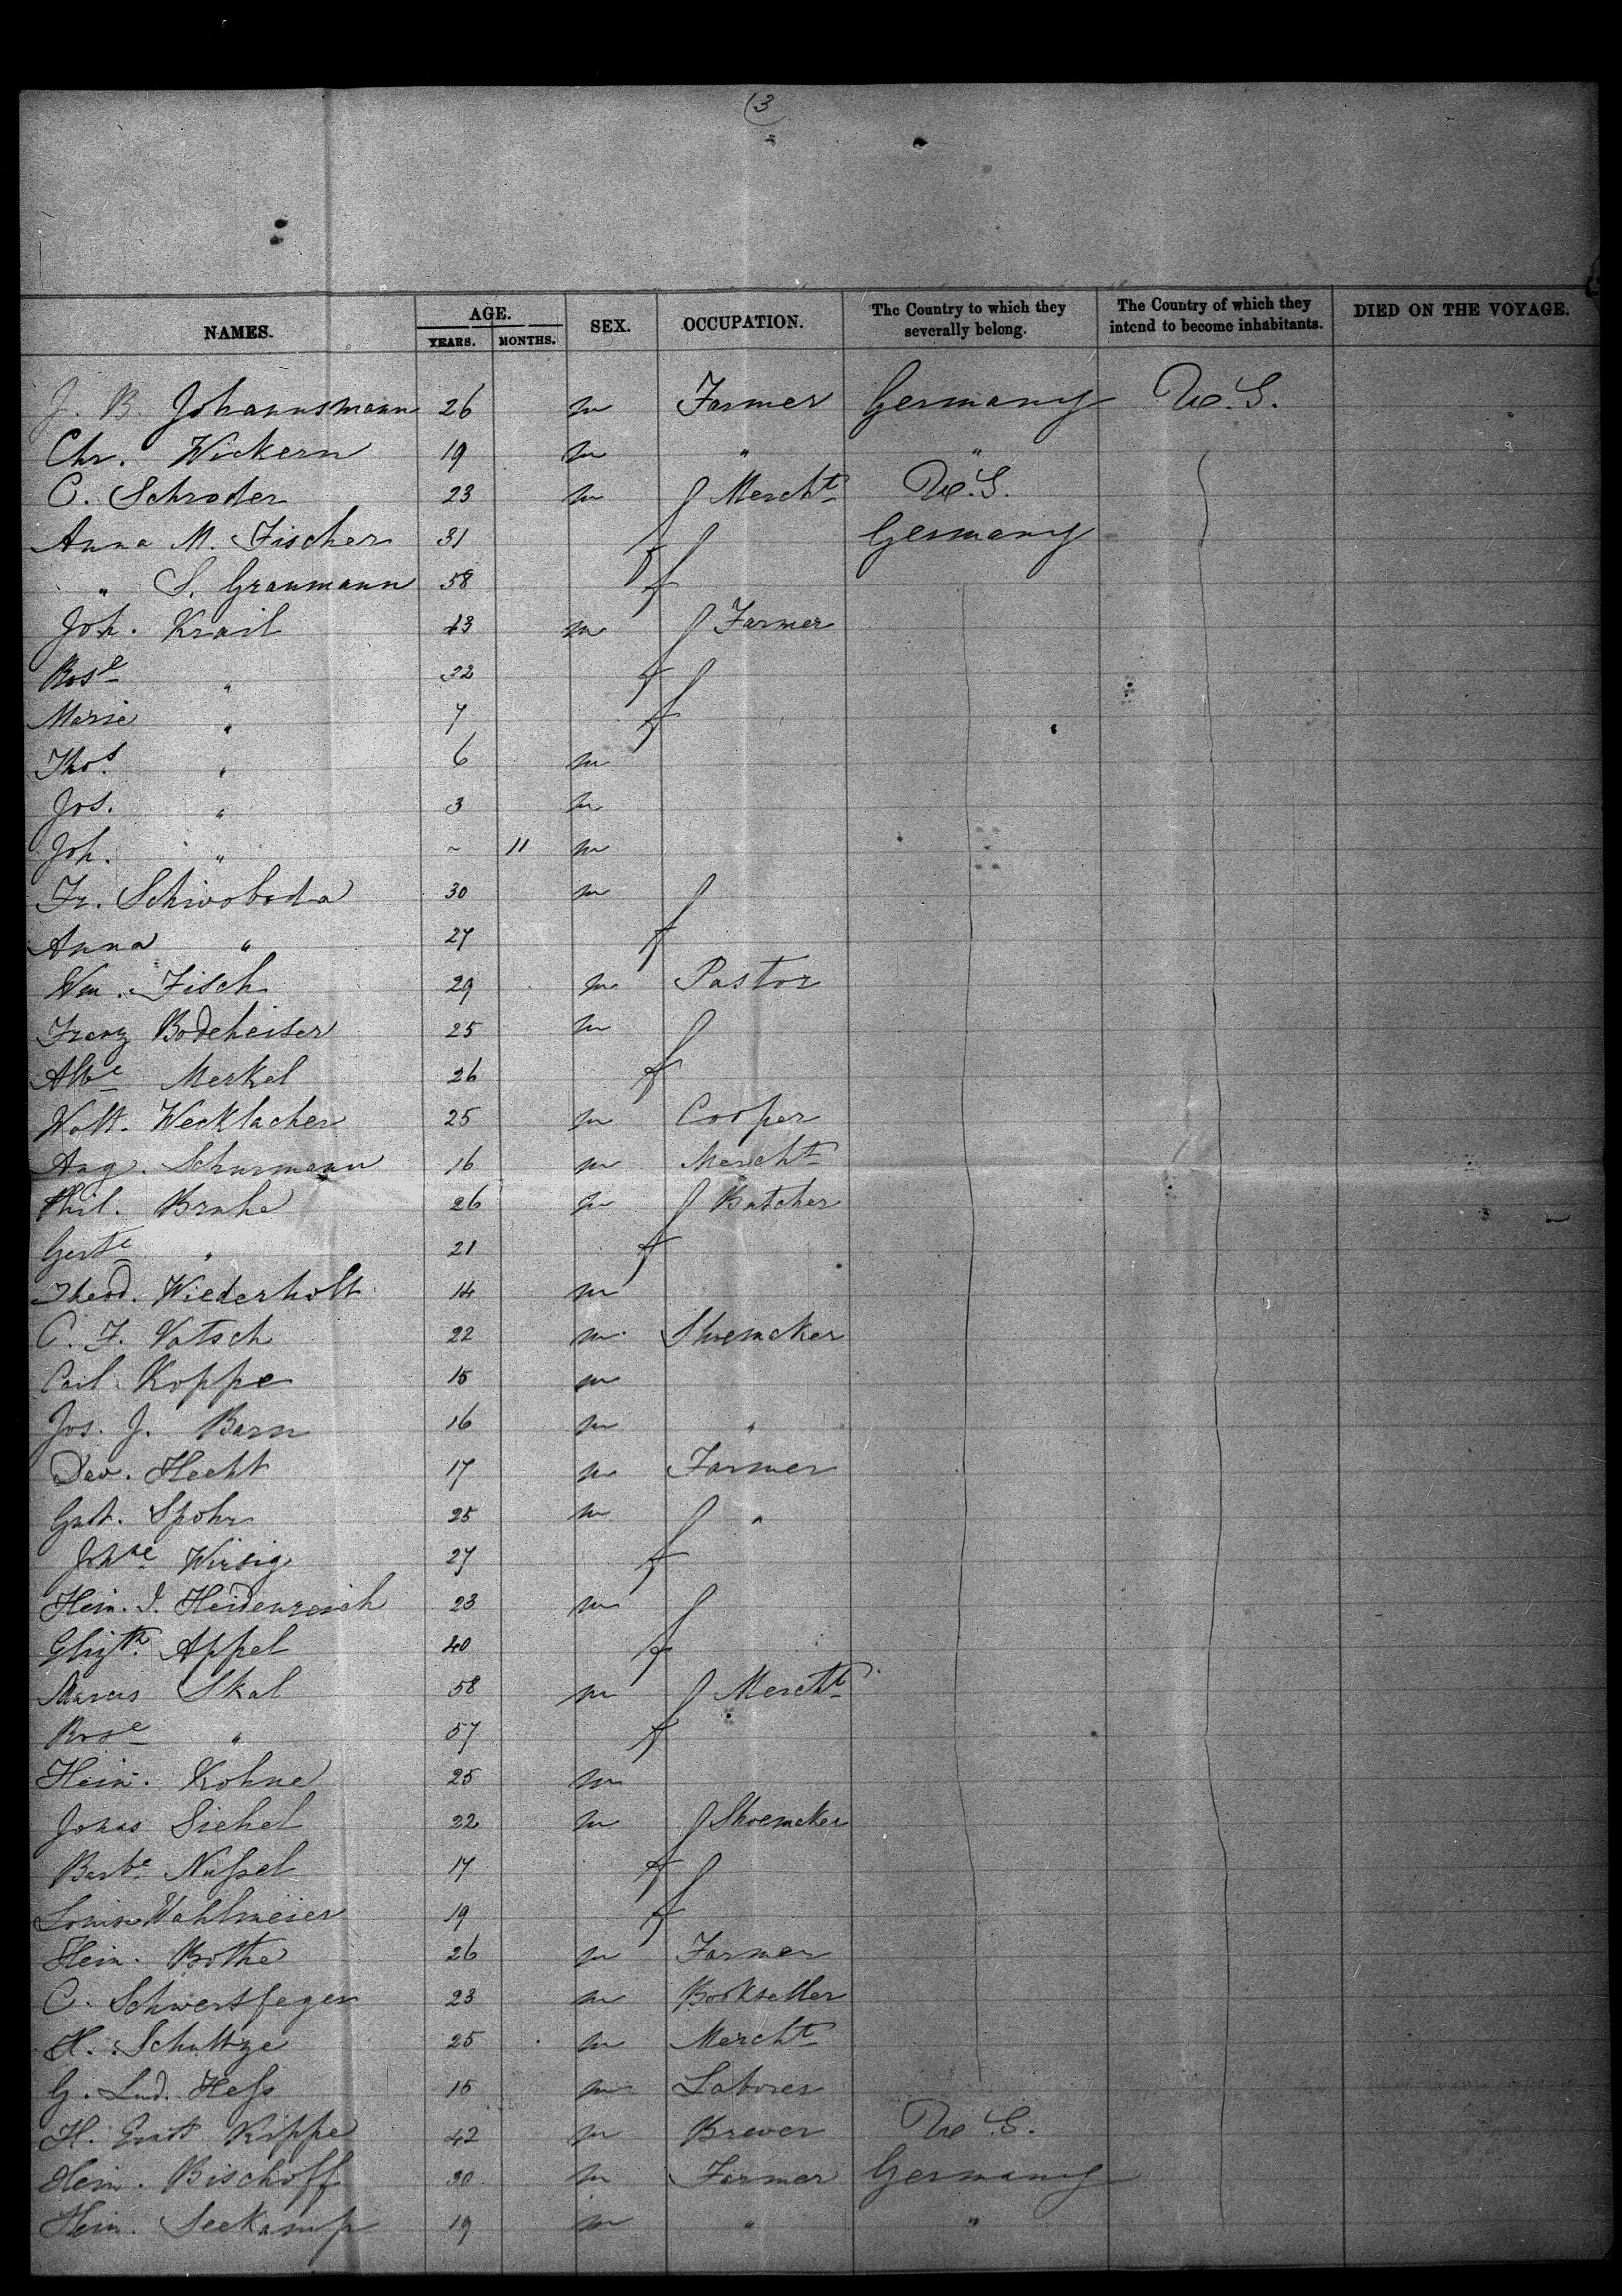 3
NAMES. AGE. SEX. OCCUPATION. The Country to which they severally belong. The Country of which they intend to become inhabitants. DIED ON THE VOYAGE.
YEARS. MONTHS.
J. B. Johannsmann 26 m Farmer Germany U.S.
Chr. Wickern 19 m " "
C. Schroder 23 m Mercht U.S.
Anna M. Fischer 31 f Germany
" S. Graumann 58 f
Joh. Krail 43 m Farmer
Rose " 32 f
Marie " 7 f
Thos. " 6 m
Jos. " 3 m
Joh. " ~ 11 m
Fr. Schwoboda 30 m
Anna " 27 f
Wm. Fisch 29 m Pastor
Franz Bodeheiser 25 m
Albe Merkel 26 f
Wolf. Wecklacher 25 m Cooper
Aug. Schurmann 16 m Mercht
Phil. Bruhe 26 m Butcher
Gerte " 21 f
Theod. Wiederholt 14 m
C. F. Votsch 22 m Shoemaker
Carl Koppe 15 m
Jos. J. Barn 16 m "
Dav. Hecht 17 m Farmer
Gust. Spohr 25 m "
Johne Wirsig 27 f
Hein. J. Heidenreich 23 m
Appel 40 f
Marcus Skal 58 m Mercht
Rose " 57 f
Hein. Kohne 25 m
Jonas Sichel 22 m Shoemaker
Barbe Nussel 17 f
Louise Wahlmeier 19 f
Hein. Bothe 26 m Farmer
C. Schwertfeger 23 m Bookseller
H. Schultze 25 m Mercht
G. Lud. Hess 15 m Laborer
H. Ernst Kippe 42 m Brewer U.S.
Hein. Bischoff 30 m Farmer Germany
Hein. Seekamp 19 m " "